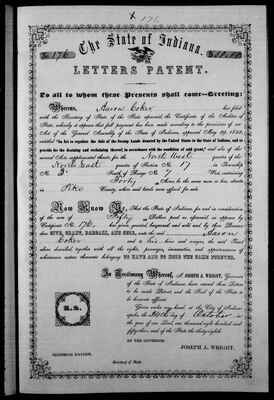 176
The State of Indiana.
No 176
LETTERS PATENT.
To all to whom these Presents shall come—Greeting:
Whereas, Aaron Coker has filed
with the Secretary of State of the State aforesaid, the Certificate of the Auditor of
State, whereby it appears that full payment has been made according to the provisions of an
Act of the General Assembly of the State of Indiana, approved May
entitled "An Act to regulate the sale of the Swamp Lands donated by the United States to the State of Indiana, and to
provide for the draining and reclaiming thereof in accordance with the condition of said grant," and also of the
several Acts supplemental thereto, for the North West quarter of the
North East quarter of Section No. 17 in Township
No. 3 South of Range No. 7 West containing
Forty Acres, be the same more or less, situate
in Pike County, within said State, was offered for sale.
Now Know Ye, That the State of Indiana, for and in consideration
of the sum of Fifty Dollars paid as aforesaid, as appears by
Certificate No. 176, has given, granted, bargained, and sold, and by these Presents
does GIVE, GRANT, BARGAIN, AND SELL, unto the said Aaron
Coker and to his heirs and assigns, the said Tract
above described, together with all the rights, privileges, immunities, and appurtenances
of whatsoever nature thereunto belonging, TO HAVE AND TO HOLD THE SAME FOREVER.
In Testimony Whereof, I, JOSEPH A. WRIGHT, Governor
of the State of Indiana, have caused these Letters
to be made Patent and the Seal of the State to
be hereunto affixed.
Given under my hand, at the City of Indianapolis,
the day of October in the
year of our Lord, one thousand eight hundred and
fifty and of the State the thirty-eighth
BY THE GOVERNOR.
JOSEPH A. WRIGHT.
Secretary of State.